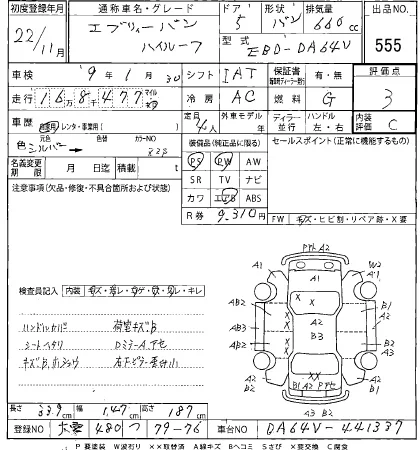 初度登録年月 通称車名・グレード ドア 形状 排気量 出品NO.
22/11月 エブリィー バン ハイルーフ 5 バン 660cc 555
型式 EBD-DA64V
車検 9年1月30 シフト IAT 保証書 有・無 評価点
走行 168477 冷房 AC 燃料 G 3
車歴 自家用・レンタ・事業用( ) 定員 4人 外車モデル ディーラー・並行 ハンドル 左・右 内装評価 C
色 元色 シルバー 色替 カラーNO 装備品(純正品に限る) セールスポイント(正常に機能するもの)
名義変更期限 月 日迄 積載 t PS PW AW
注意事項(欠品・修復・不具合箇所および状態) SR TV ナビ
カワ エアB ABS
R券 9,310円
FW キズ・ヒビ割・リペア跡・X要
検査員記入 内装 キズ・汚レ・コゲ・穴・切レ・キレ
ハンドルカバー 荷室キズB
シートヘタリ DミラーA アセ
キズB
アセ A2
A1 A1 W2 A1
AB2 XX A2 B1
AB3 X B3 A2
AB2 X B1
A2 XX A2
B2 B1 A2 アセ B2
A3 B2
長さ 339cm 幅 147cm 高さ 187cm
登録NO 480 つ 79-76 車台NO DA64V-441337
P要塗装 W波有り XX取替済 A線キズ Bヘコミ Sさび X要交換 C腐食